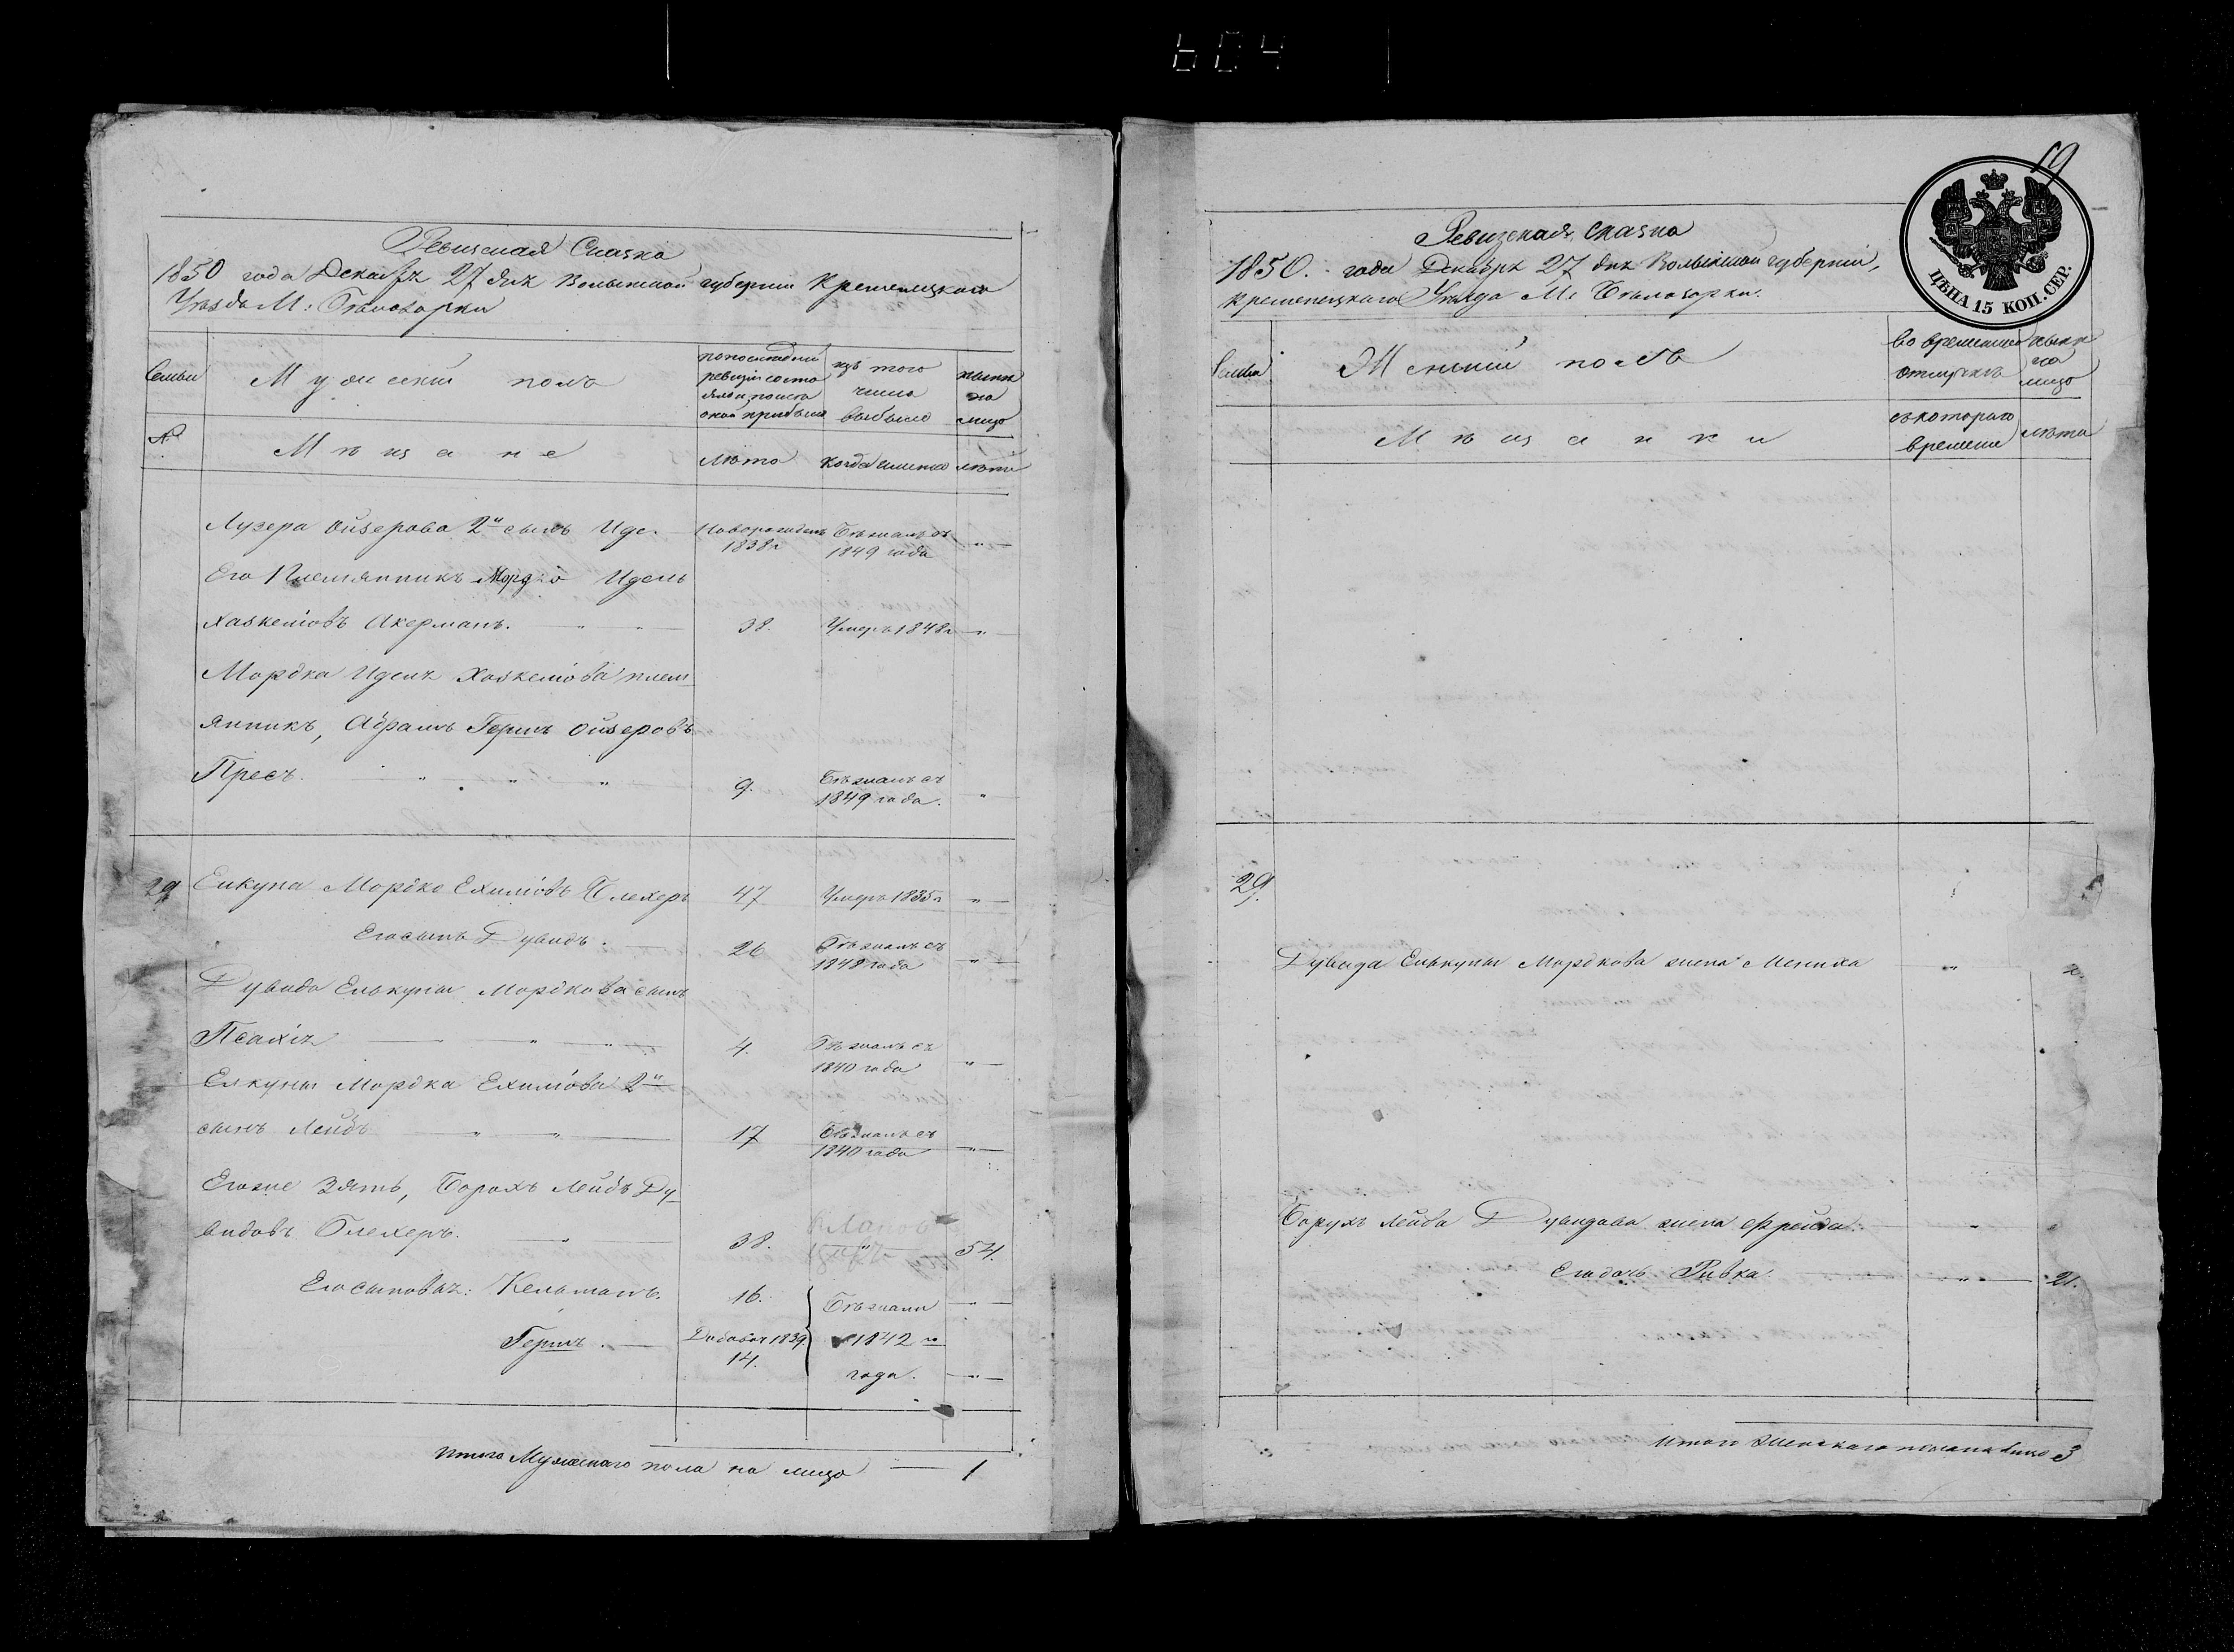 604
Ревизская Сказка
1850 года Декабря 27 дня Волынской губернии Кременецкаго
Уезда М: Белозорки
Семьи
Мужеский полъ
по последней
ревизіи состо
яло и после
оной прибыло
изъ того
числа
выбыло
ныне
на
лицо
№
Мѣщане
Лѣта
Когда именно
лѣта
Лузера Ойзерова 2й сынъ Иде.
Новорожденъ
1838г
Бѣжалъ съ
1849 года
Его Племянникъ Мордко Идель
Хаскелiовъ Акерманъ.
38.
Умеръ 1848г
Мордка Иделя Хаскелiова плем
янникъ, Абрамъ Гершъ Ойзеровъ
Пресъ.
9.
Бѣжалъ съ
1849 года.
29
Елкуна Мордко Ехимовъ Блехеръ
47
Умеръ 1835г
Его сынъ Дувидъ.
26
Бѣжалъ съ
1848 года
Дувида Елькуны Мордкова сынъ
Псахiя
4.
Бѣжалъ съ
1840 года
Елкуны Мордка Ехимова 2й
сынъ Лейбъ
17
Бѣжалъ съ
1840 года
Егоже Зять, Борохъ Лейбъ Ду
видовъ Блехеръ.
38.
54.
Его сыновья: Кельманъ.
16.
Бѣжали
Гершъ.
Добавоч 1839.
14.
1842 го
года.
Итого Мужескаго пола на лицо
1
19
ЦѢНА 15 КОП. СЕР.
Ревизская сказка
1850. года Декабря 27 дня Волынской губерніи,
Кременецкаго Уезда М: Белозорки.
Семьи
Женскій полъ
во временной
отлучкѣ
ныне
на
лицо
Мѣщанки
съ котораго
времени
лѣта
29.
Дувида Елькуны Мордкова жена Мениха
Борухъ Лейба Дувидова жена Фрейда.
Его дочь Ривка.
21.
Итого Женскаго пола на лицо 3